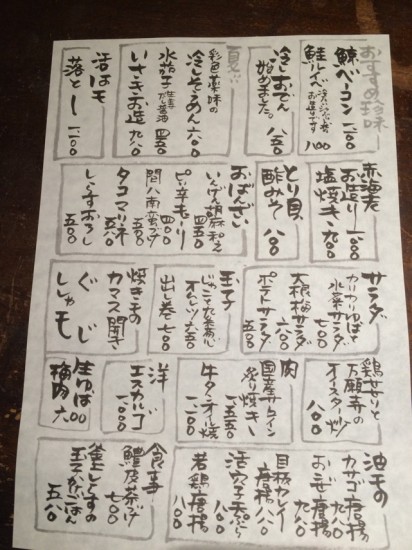 おすすめ珍味
鯨ベーコン 一二〇〇
鮭ルイベ 八〇〇
冷しおでん
始めました。 八五〇
夏
彩色薬味の
冷しそうめん 六〇〇
水茄子 四五〇
いさきお造 九八〇
活はも
落とし 一二〇〇
赤海老
お造り 一〇〇〇
塩焼き 九〇〇
とり貝
酢みそ 八〇〇
おばんざい
いんげん胡麻和え 四五〇
ピリ辛きゅーり 四〇〇
間八南蛮づけ 五五〇
タコマリネ 五五〇
しらすおろし 五〇〇
サラダ
カリカリゆばと
水菜サラダ 七〇〇
大根梅サラダ 六〇〇
ポテトサラダ 五〇〇
玉子
じゃこと九条葱の
オムレツ 六五〇
出し巻 七〇〇
焼きもの
カマス開き
ぐじ
しゃも
鶏せせりと
万願寺の
オイスター炒 八〇〇
肉
国産サーロイン
炙り焼き 一五五〇
牛タン塩焼 一二〇〇
洋
エスカルゴ 一〇〇〇
生ゆば 八〇〇
梅肉 六〇〇
油もの
カサゴ唐揚 九八〇
おこぜ唐揚 九八〇
目板カレー
唐揚 八八〇
活穴子天ぷら 一八〇〇
若鶏唐揚 八〇〇
食事
鱧皮茶づけ 七〇〇
釜上しらすの
玉子かけごはん 五八〇